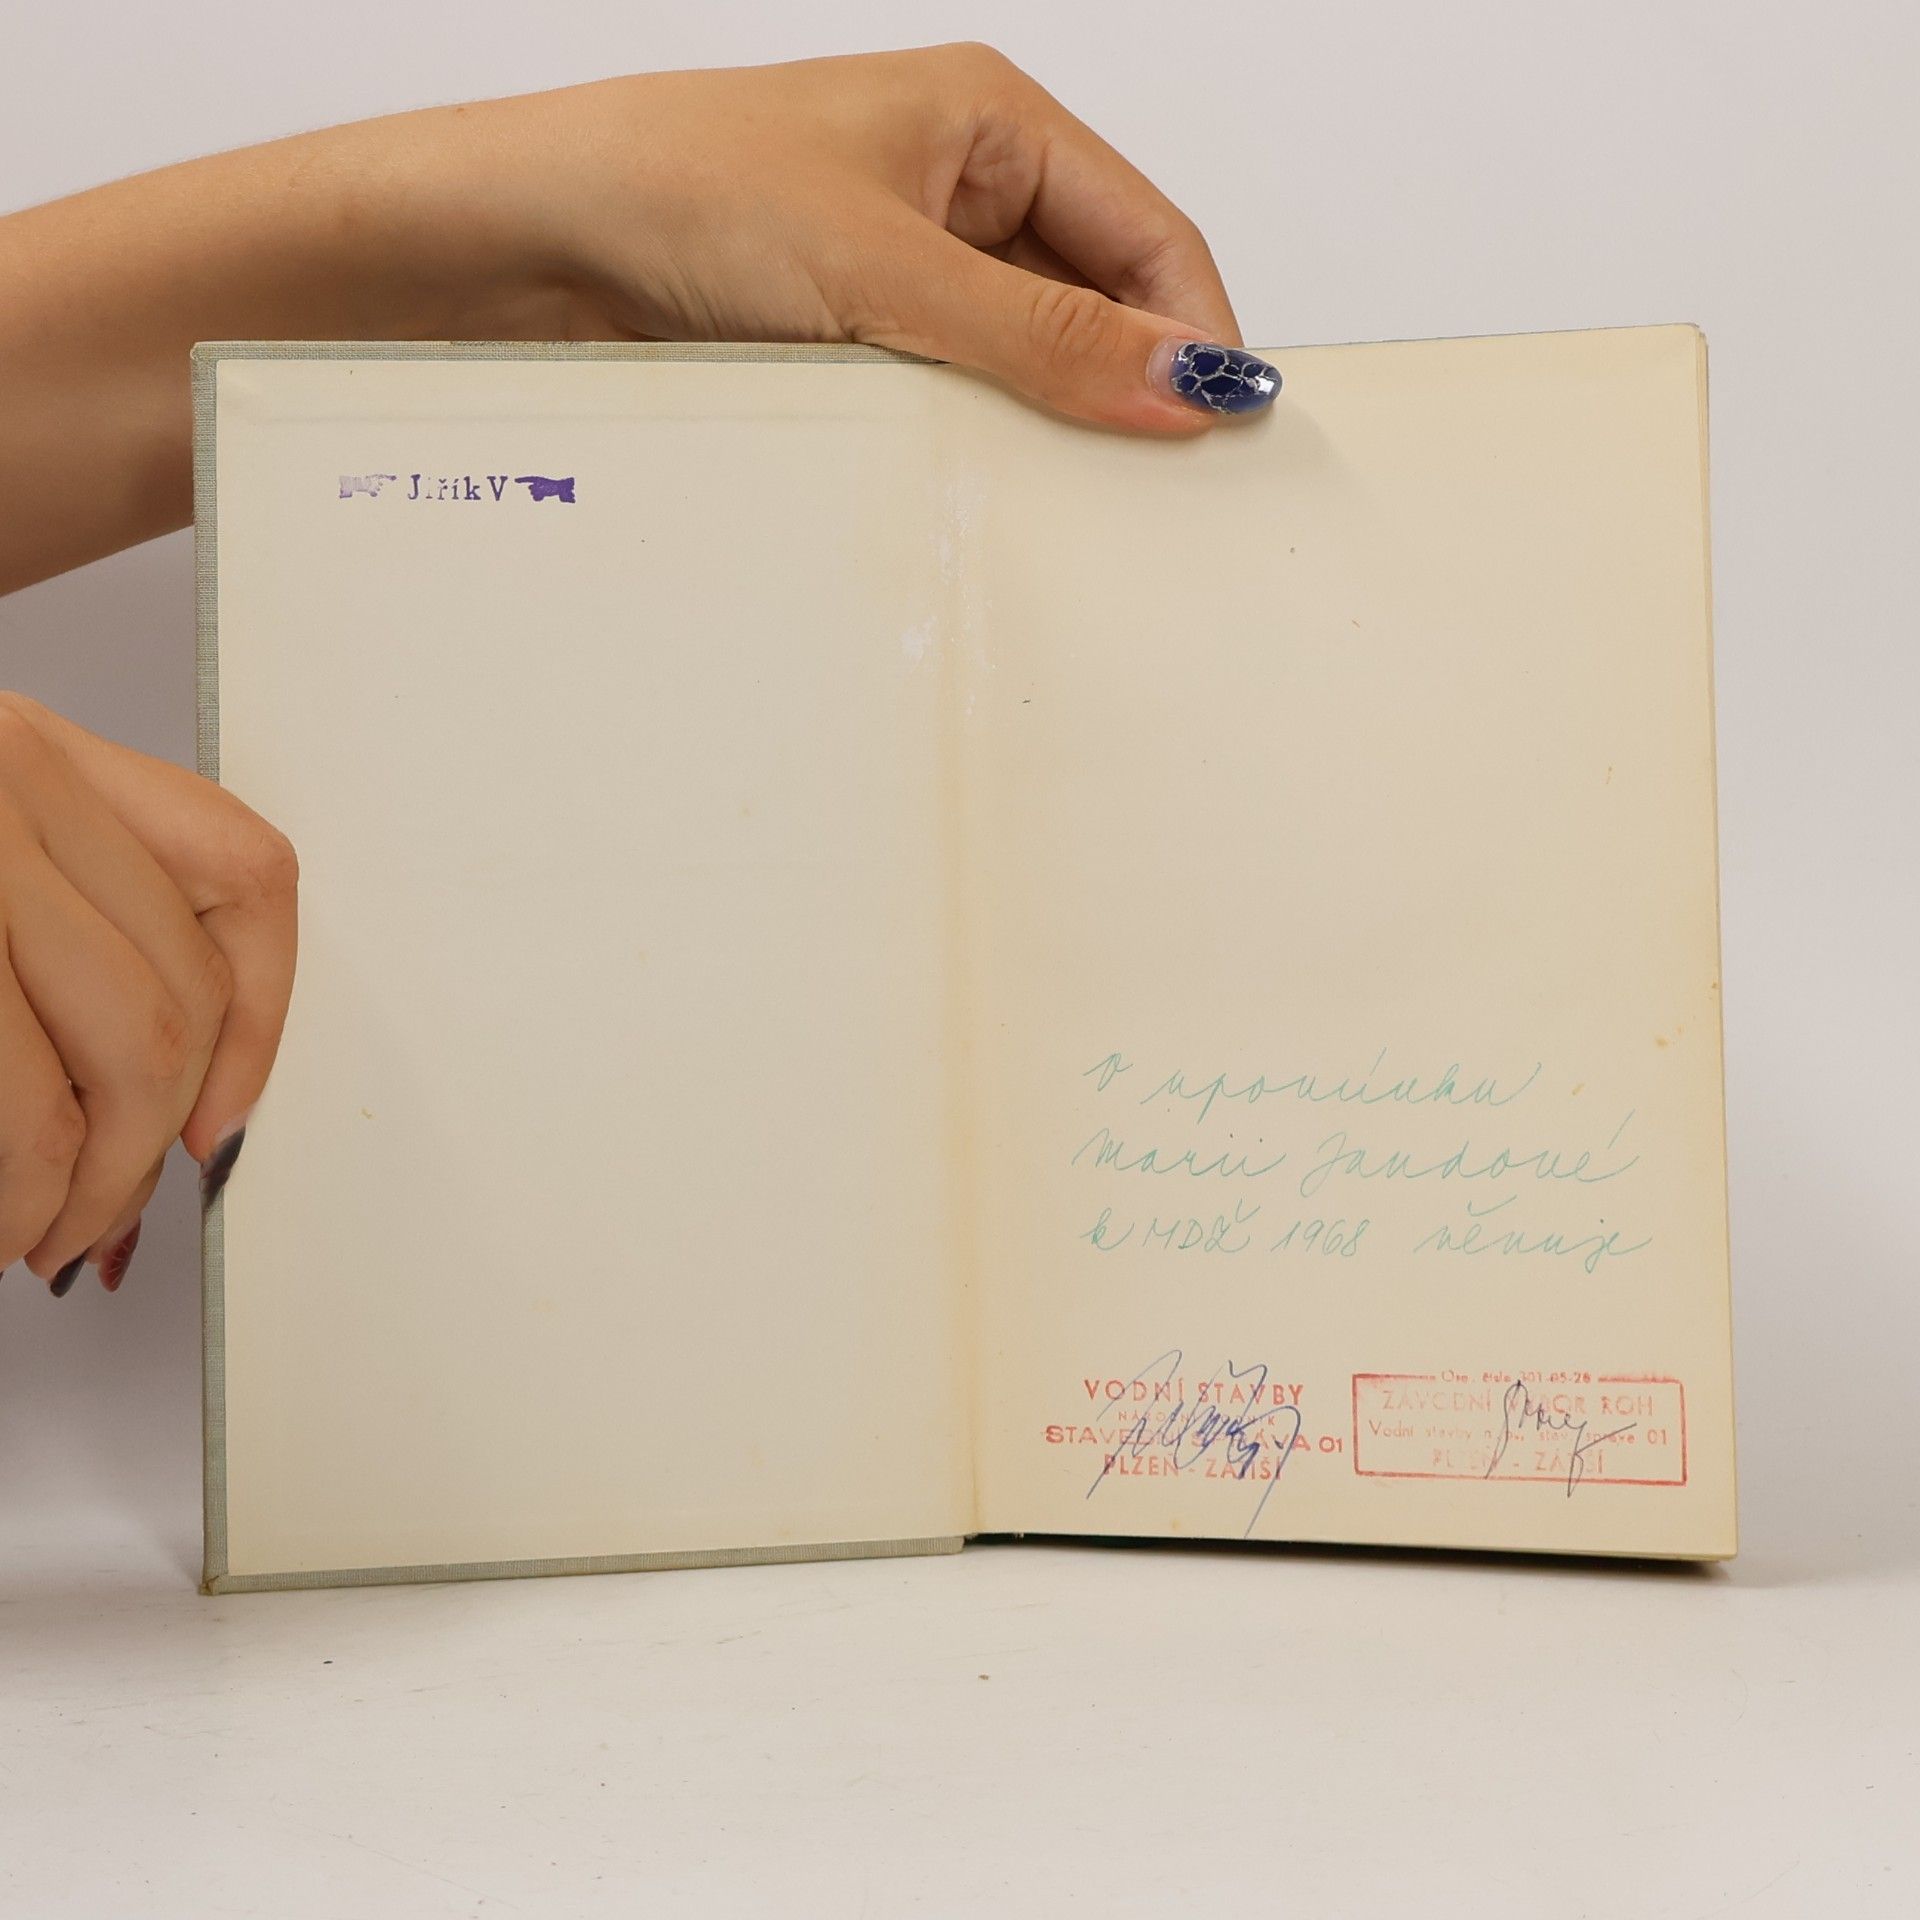 JiříkV
v upomínku
Marii Jandové
k MDŽ 1968 věnuje
VODNÍ STAVBY
NÁRODNÍ PODNIK
STAVEBNÍ SPRÁVA 01
PLZEŇ - ZÁTIŠÍ
Org. číslo 301-05-26
ZÁVODNÍ VÝBOR ROH
Vodní stavby n. p., stav. správa 01
PLZEŇ - ZÁTIŠÍ